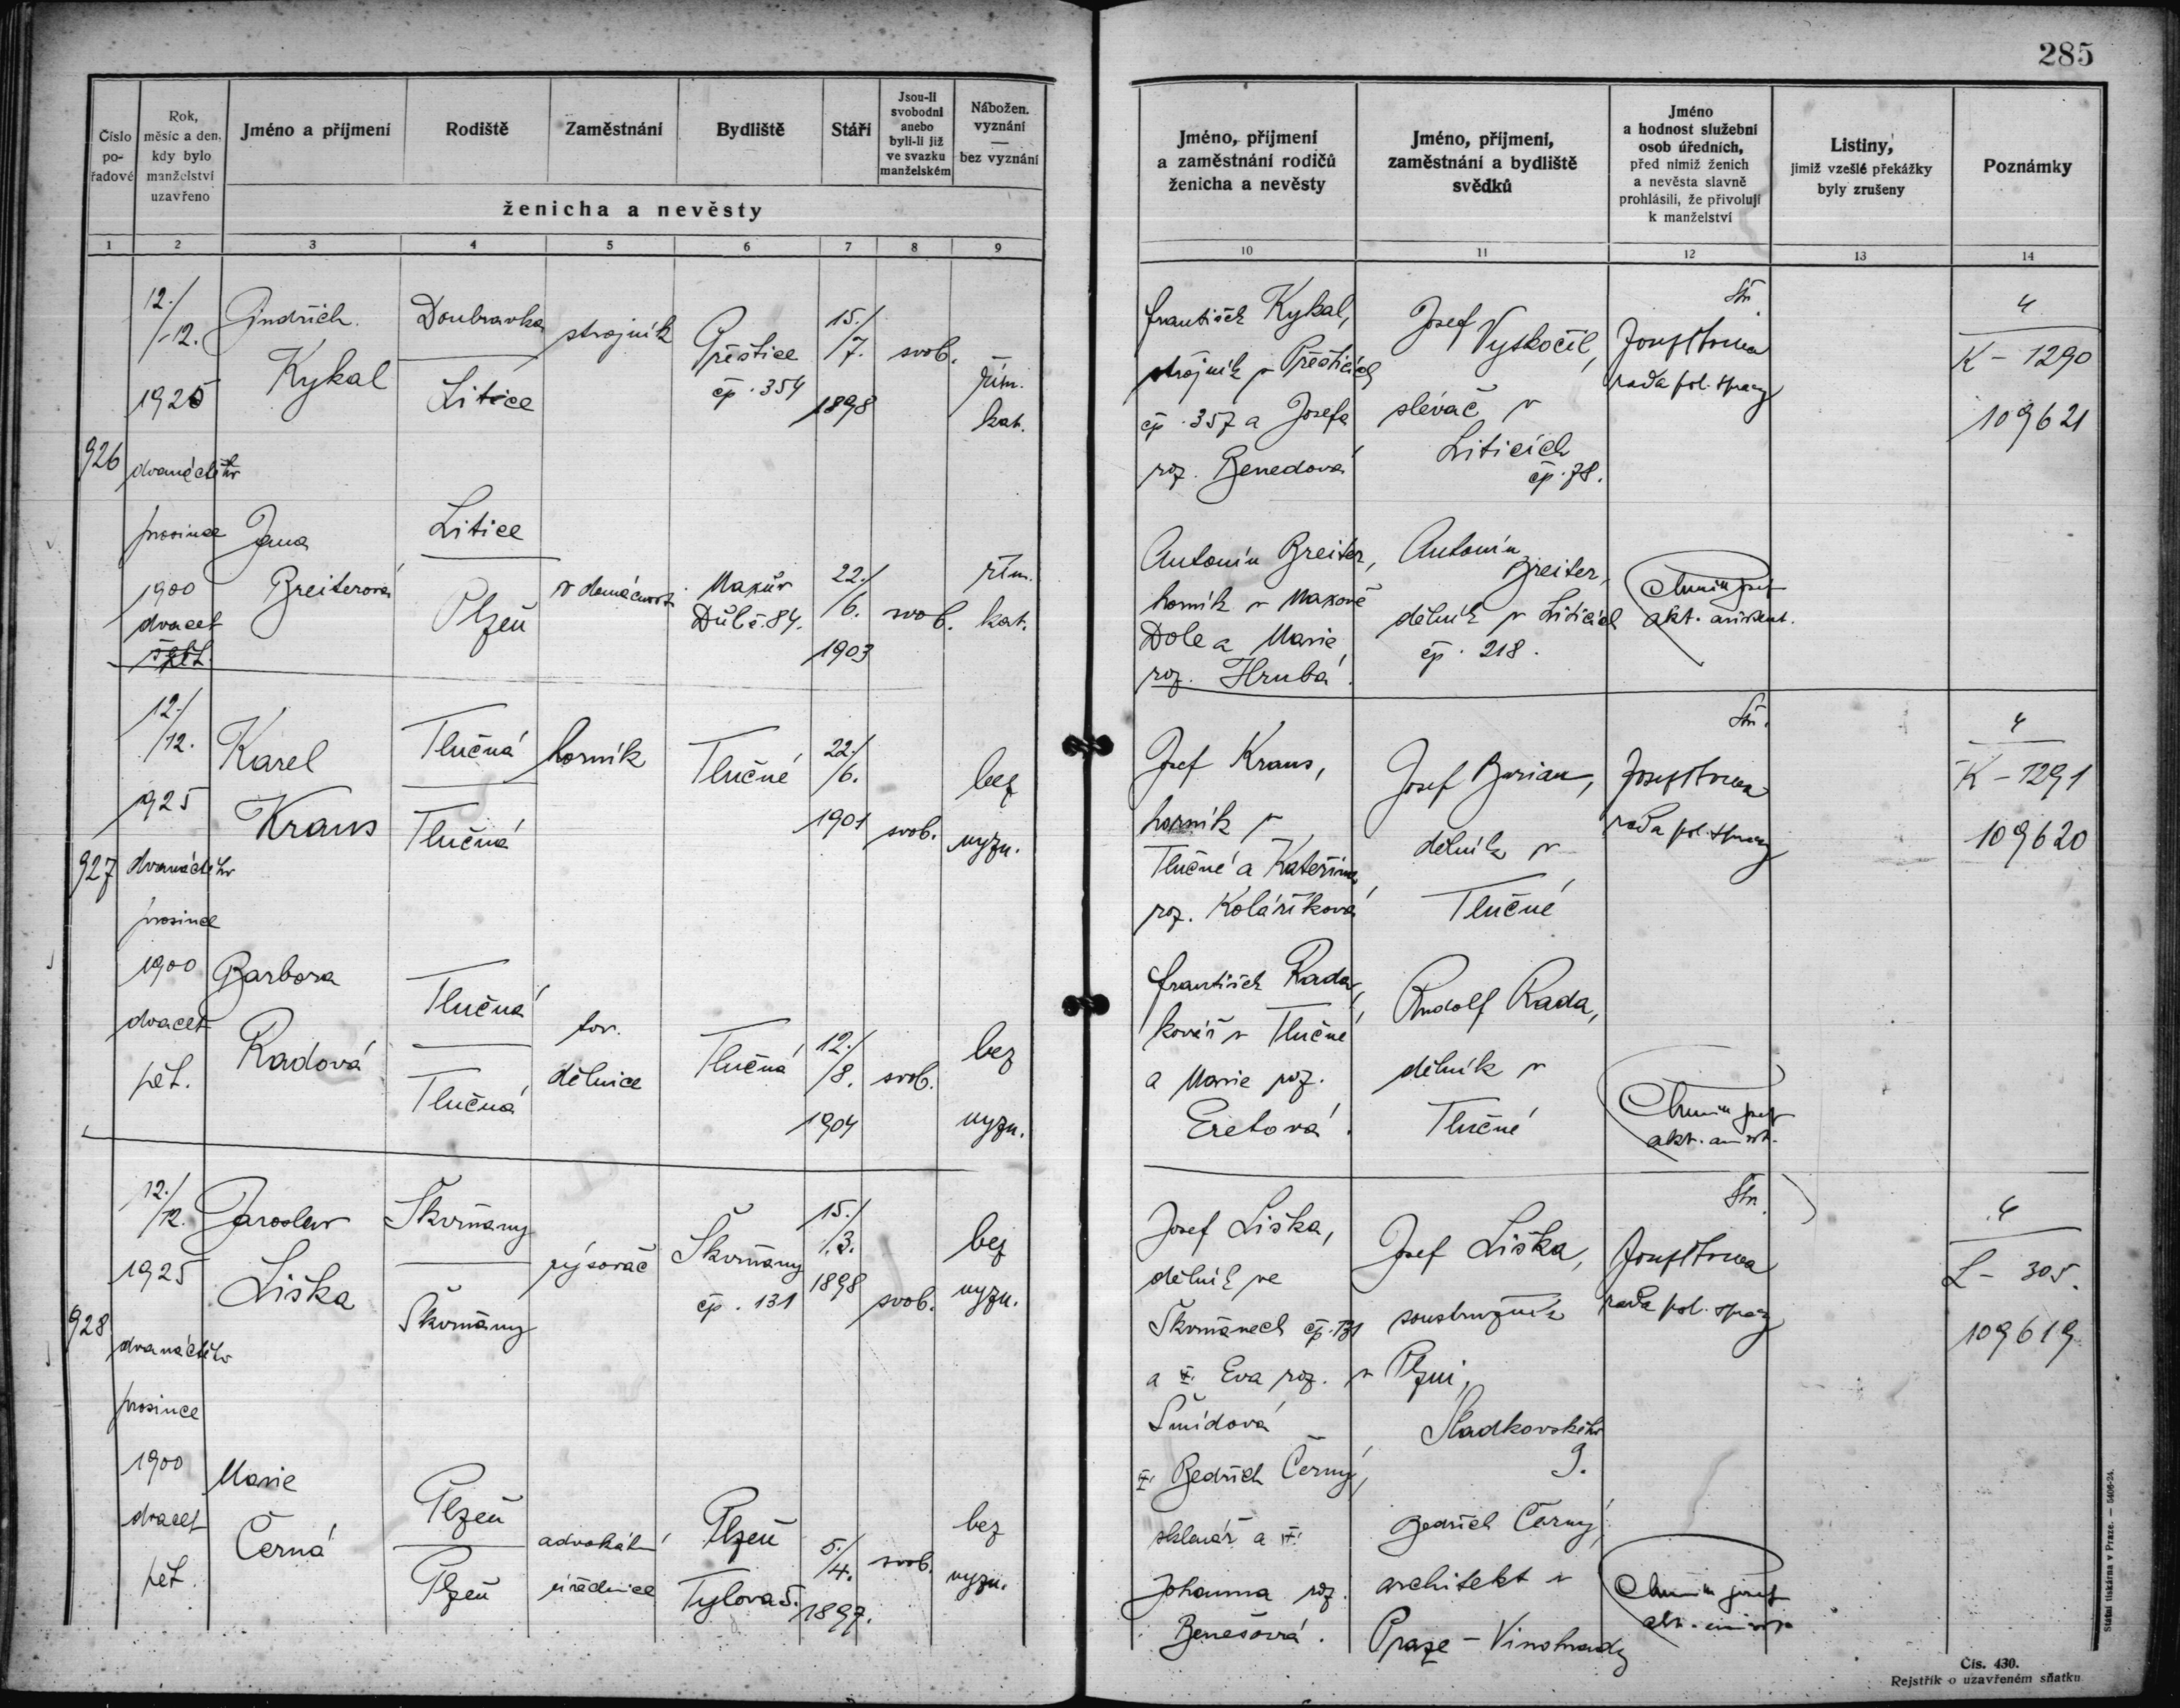 285
Číslo po-řadové
Rok, měsíc a den, kdy bylo manželství uzavřeno
Jméno a příjmení
Rodiště
Zaměstnání
Bydliště
Stáří
Jsou-li svobodni anebo byli-li již ve svazku manželském
Nábožen. vyznání — bez vyznání
ženicha a nevěsty
Jméno, příjmení a zaměstnání rodičů ženicha a nevěsty
Jméno, příjmení, zaměstnání a bydliště svědků
Jméno a hodnost služební osob úředních, před nimiž ženich a nevěsta slavně prohlásili, že přivolují k manželství
Listiny, jimiž vzešlé překážky byly zrušeny
Poznámky
1 2 3 4 5 6 7 8 9
10 11 12 13 14
926
12./
/12.
1925
dvanáctého
prosince
1900
dvacet
Jindřich
Kykal
Doubravka
Litice
strojník
Přeštice
čp. 354
15./
/7.
1898
svob.
řím.
kat.
Jana
Breiterová
Litice
Plzeň
v domácnosti
Mapův
Důl č. 84.
22./
/6.
1903
svob.
řím.
kat.
František Kykal,
strojník v Přešticích
čp. 357 a Josefa
roz. Benedová
Antonín Breiter,
horník v Mapově
Dole a Marie
roz. Hrubá.
Josef
Vyskočil,
slévač v
Liticích
čp. 78.
Antonín
Breiter,
dělník v Liticích
čp. 218.
rada pol. správy
akt. asistent.
4
K - 1290
109621
927
12./
/12.
1925
dvanáctého
prosince
1900
dvacet
pět.
Karel
Kraus
Tlučná
Tlučná
horník
Tlučné
22./
/6.
1901
svob.
bez
vyzn.
Barbora
Radová
Tlučná
Tlučná
tov.
dělnice
Tlučná
12./
/8.
1904
svob.
bez
vyzn.
Josef Kraus,
horník v
Tlučné a Kateřina
roz. Koláříková
František Rada,
kovář v Tlučné
a Marie roz.
Eretová.
Josef Burian,
dělník v
Tlučné
Rudolf Rada,
dělník v
Tlučné
rada pol. správy
4
K - 1291
109620
928
12./
/12.
1925
dvanáctého
prosince
1900
dvacet
pět.
Jaroslav
Liška
Škvrňany
Škvrňany
rýsovač
Škvrňany
čp. 131
15./
/3.
1898
svob.
bez
vyzn.
Marie
Černá
Plzeň
Plzeň
advokátní
úřednice
Plzeň
Tylova 5.
5./
/4.
1897.
svob.
bez
vyzn.
Josef Liška,
dělník ve
Škvrňanech čp. 131
a Eva roz.
Šmídová
Bedřich Černý,
sklenář a
Johanna roz.
Benešová.
Josef Liška,
soustružník
v Plzni,
Sladkovského
9.
Bedřich Černý,
architekt v
Praze - Vinohrady
rada pol. správy
4
L - 305.
109619
Státní tiskárna v Praze. — 5406-24.
Čís. 430.
Rejstřík o uzavřeném sňatku